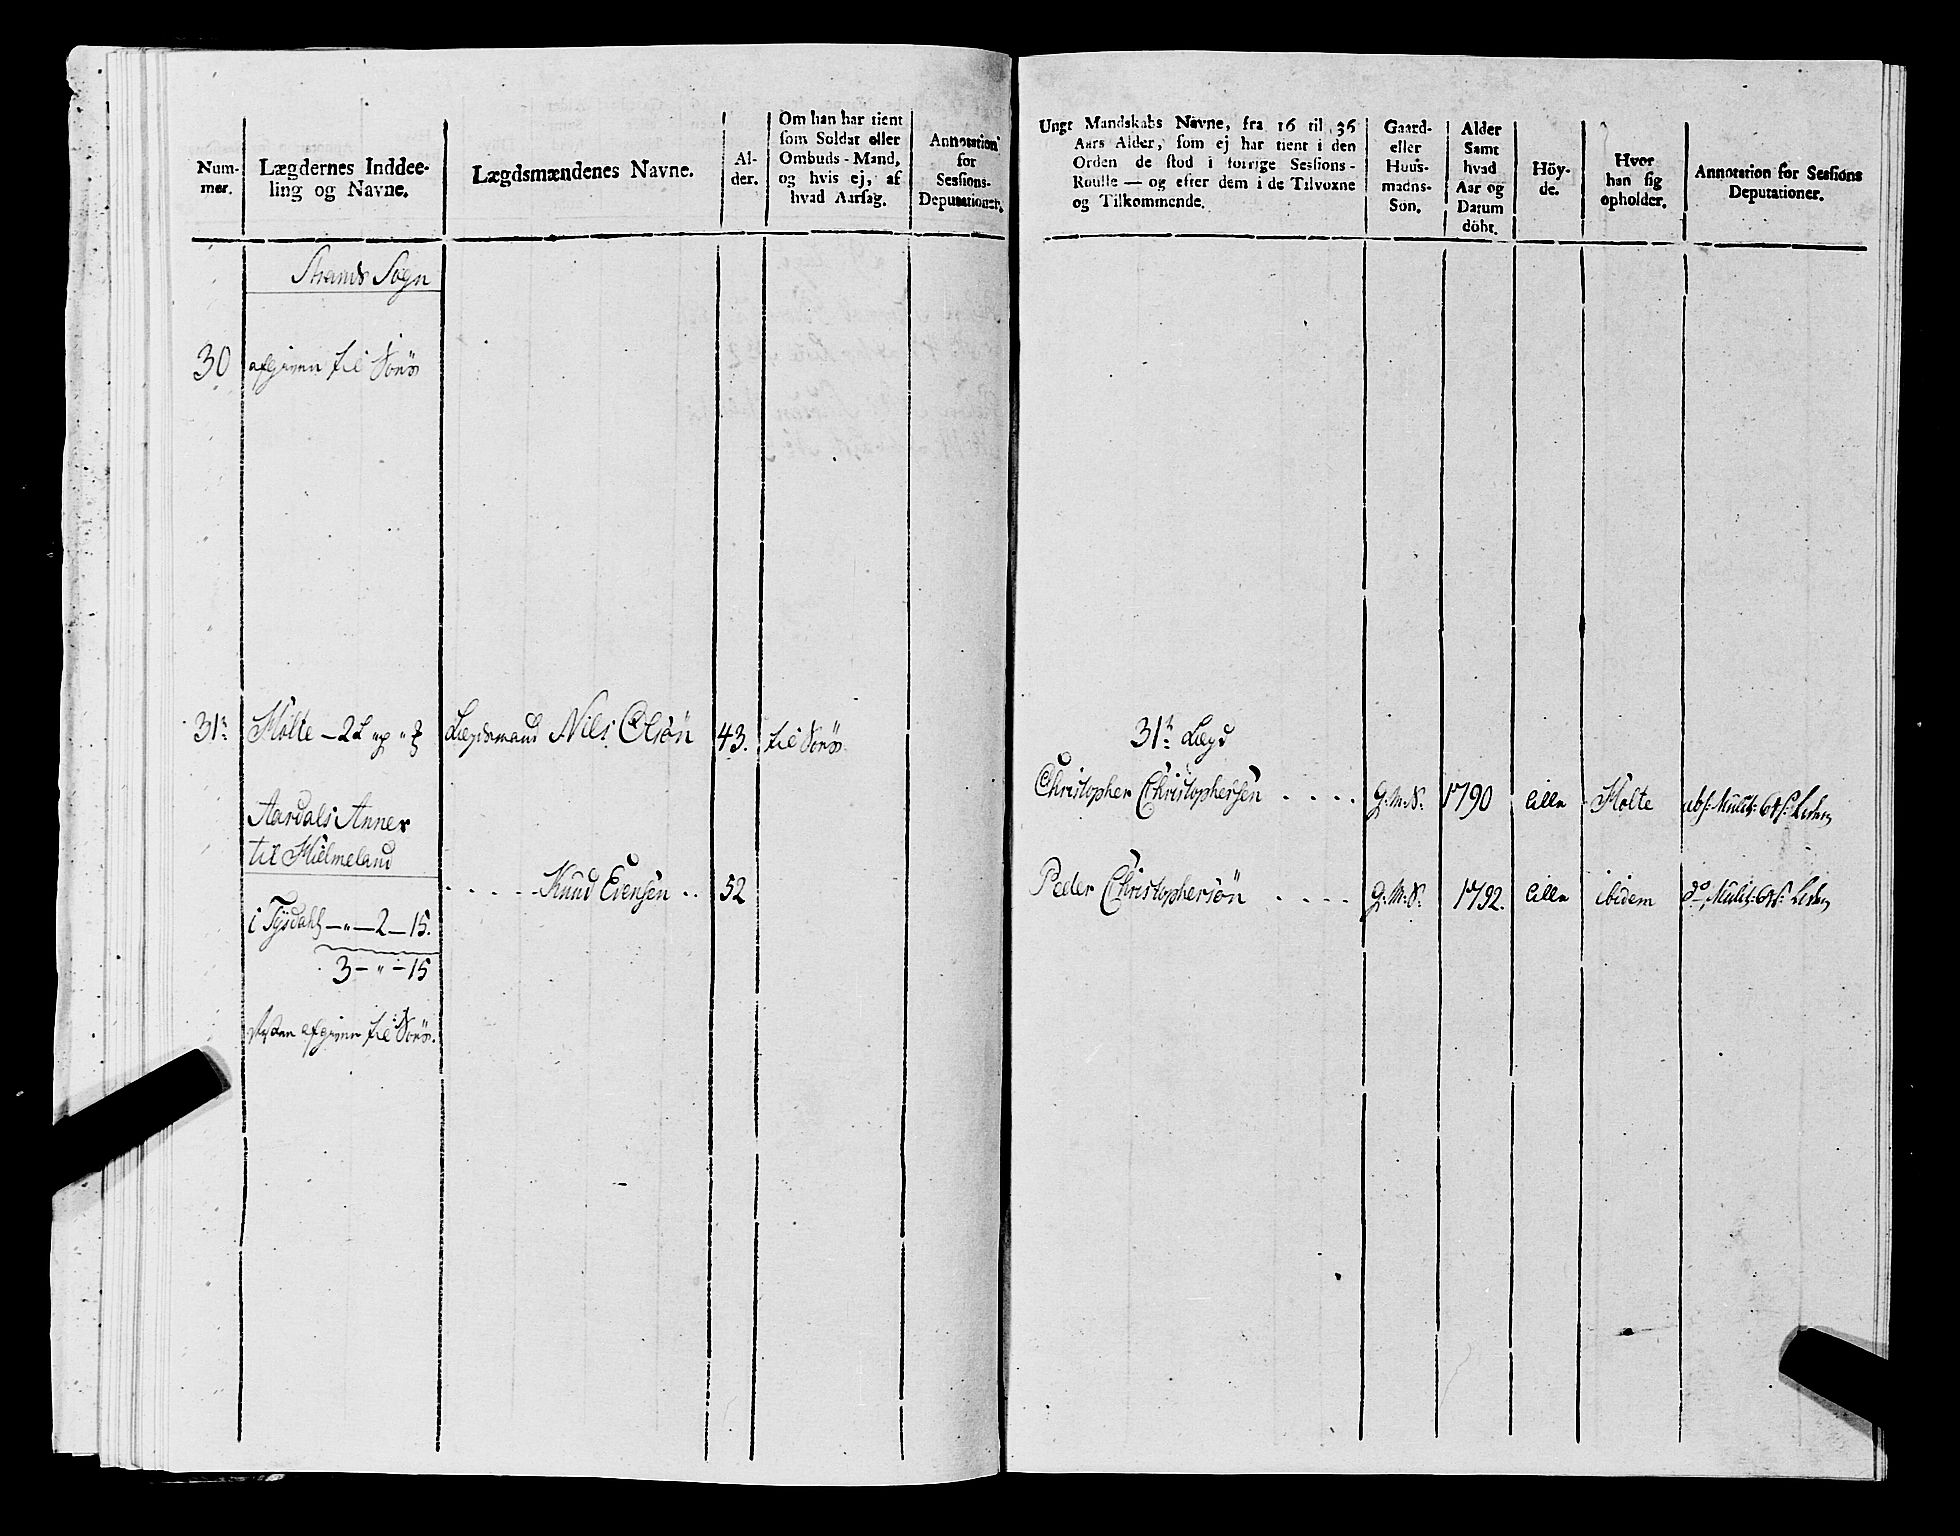 Num-
mer.
Lægdernes Inddee-
ling og Navne.
Lægdsmændenes Navne.
Al-
der.
Om han har tient
som Soldat eller
Ombuds-Mand,
og hvis ej, af
hvad Aarsag.
Annotation
for
Sessions-
Deputationer.
Strands Sogn
30 afgiven til
31te Holte - 2 Lægdsmand Niels Olsön 43. til
Aardals Annex
til Hielmeland
Knud Evensen 52
i Tysdahl - " - 2 - 15.
3 - " - 15
afgiven til
Ungt Mandskabs Navne, fra 16 til 36
Aars Alder, som ej har tient i den
Orden de stod i forrige Sessions-
Roulle — og efter dem i de Tilvoxne
og Tilkommende.
Gaard-
eller
Huus-
mands-
Søn.
Alder
Samt
hvad
Aar og
Datum
döbt.
Höy-
de.
Hvor
han sig
opholder.
Annotation for Sessions
Deputationer.
31te Lægd
Christopher Christophersen . . . . G. M. S. 1790 lille Holte
Peder Christophersön . . . . G. M. S. 1792. lille ibidem